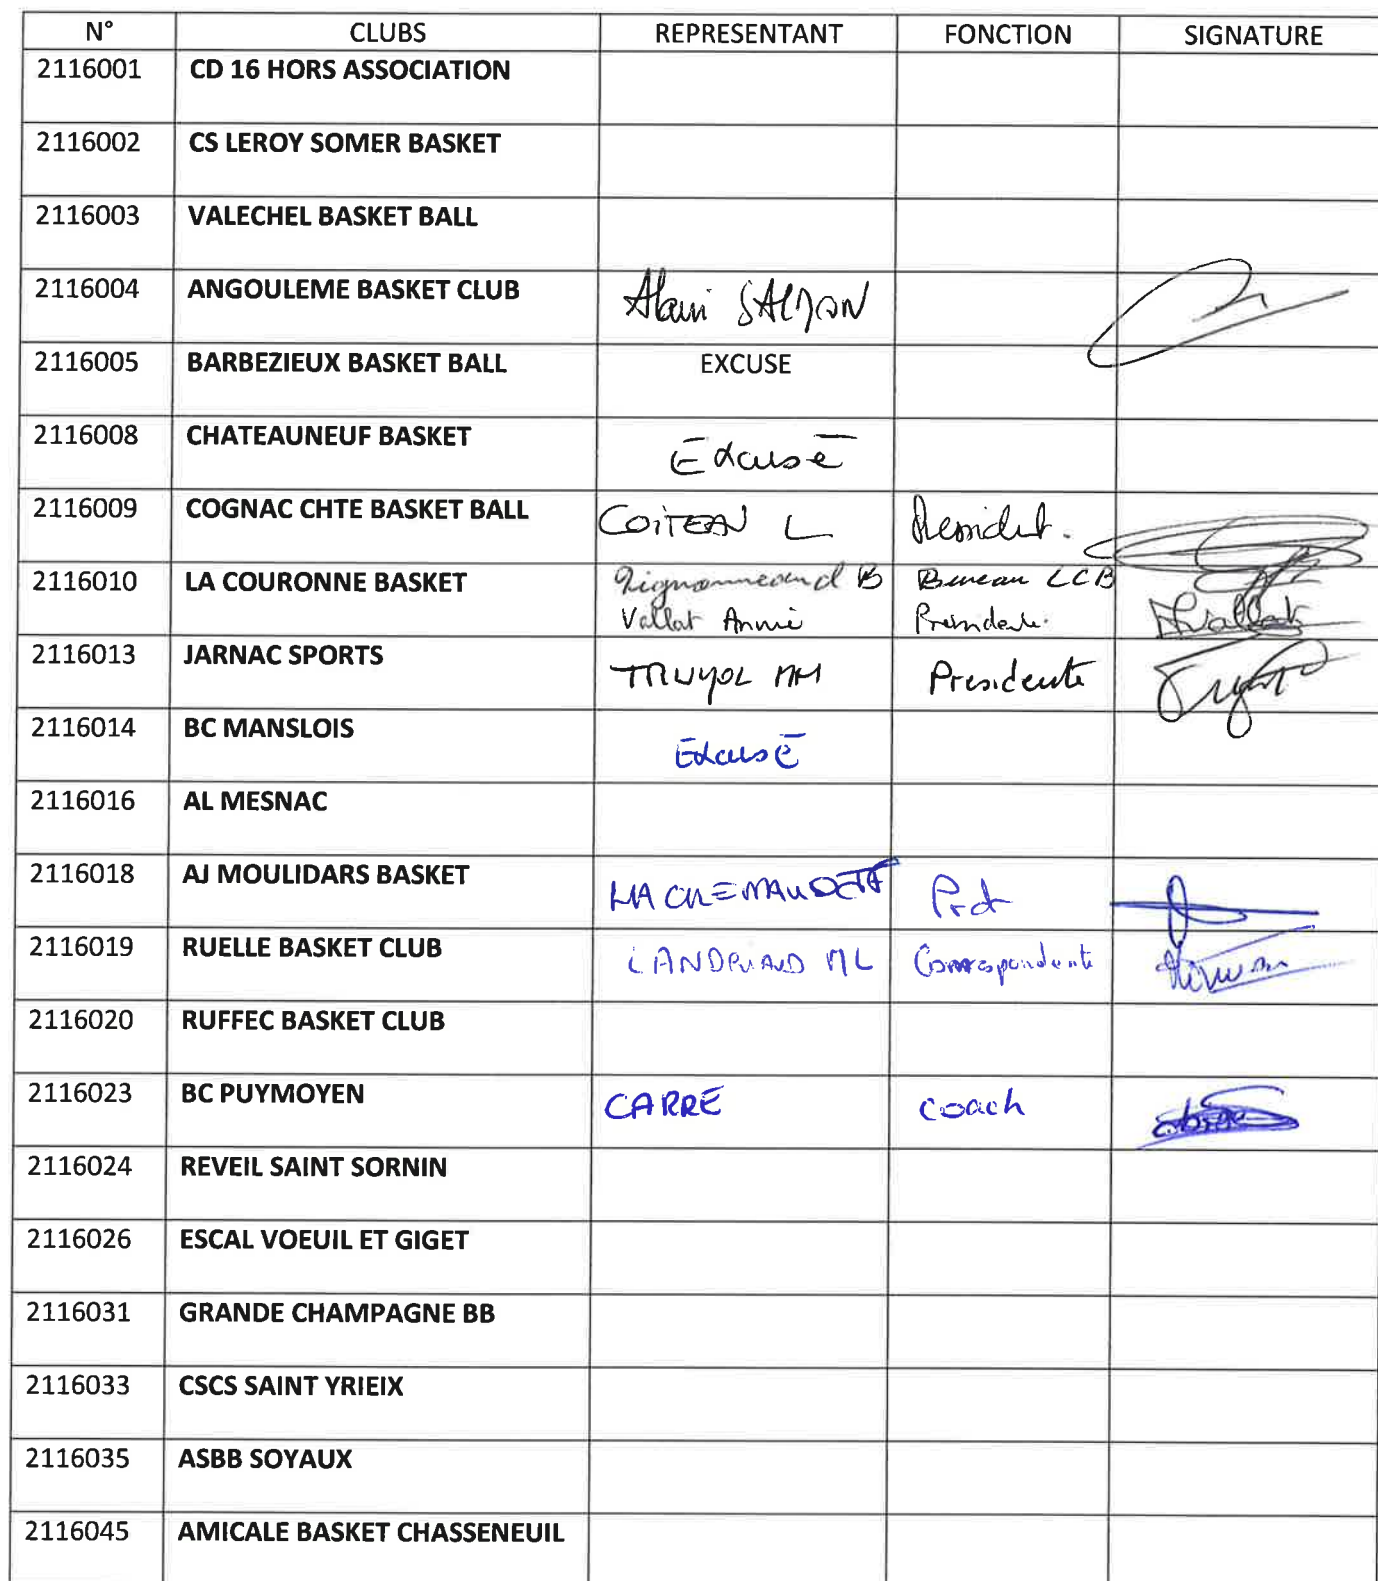 N° CLUBS REPRESENTANT FONCTION SIGNATURE
2116001 CD 16 HORS ASSOCIATION
2116002 CS LEROY SOMER BASKET
2116003 VALECHEL BASKET BALL
2116004 ANGOULEME BASKET CLUB Alain
2116005 BARBEZIEUX BASKET BALL EXCUSE
2116008 CHATEAUNEUF BASKET Excusé
2116009 COGNAC CHTE BASKET BALL COITEAU L President.
2116010 LA COURONNE BASKET B Bureau LCB
Vallat Annie Presidente. AVallat
2116013 JARNAC SPORTS TRUYOL MH Presidente
2116014 BC MANSLOIS Excusé
2116016 AL MESNAC
2116018 AJ MOULIDARS BASKET Prdt
2116019 RUELLE BASKET CLUB LANDRIAUD ML Correspondente
2116020 RUFFEC BASKET CLUB
2116023 BC PUYMOYEN CARRE coach
2116024 REVEIL SAINT SORNIN
2116026 ESCAL VOEUIL ET GIGET
2116031 GRANDE CHAMPAGNE BB
2116033 CSCS SAINT YRIEIX
2116035 ASBB SOYAUX
2116045 AMICALE BASKET CHASSENEUIL